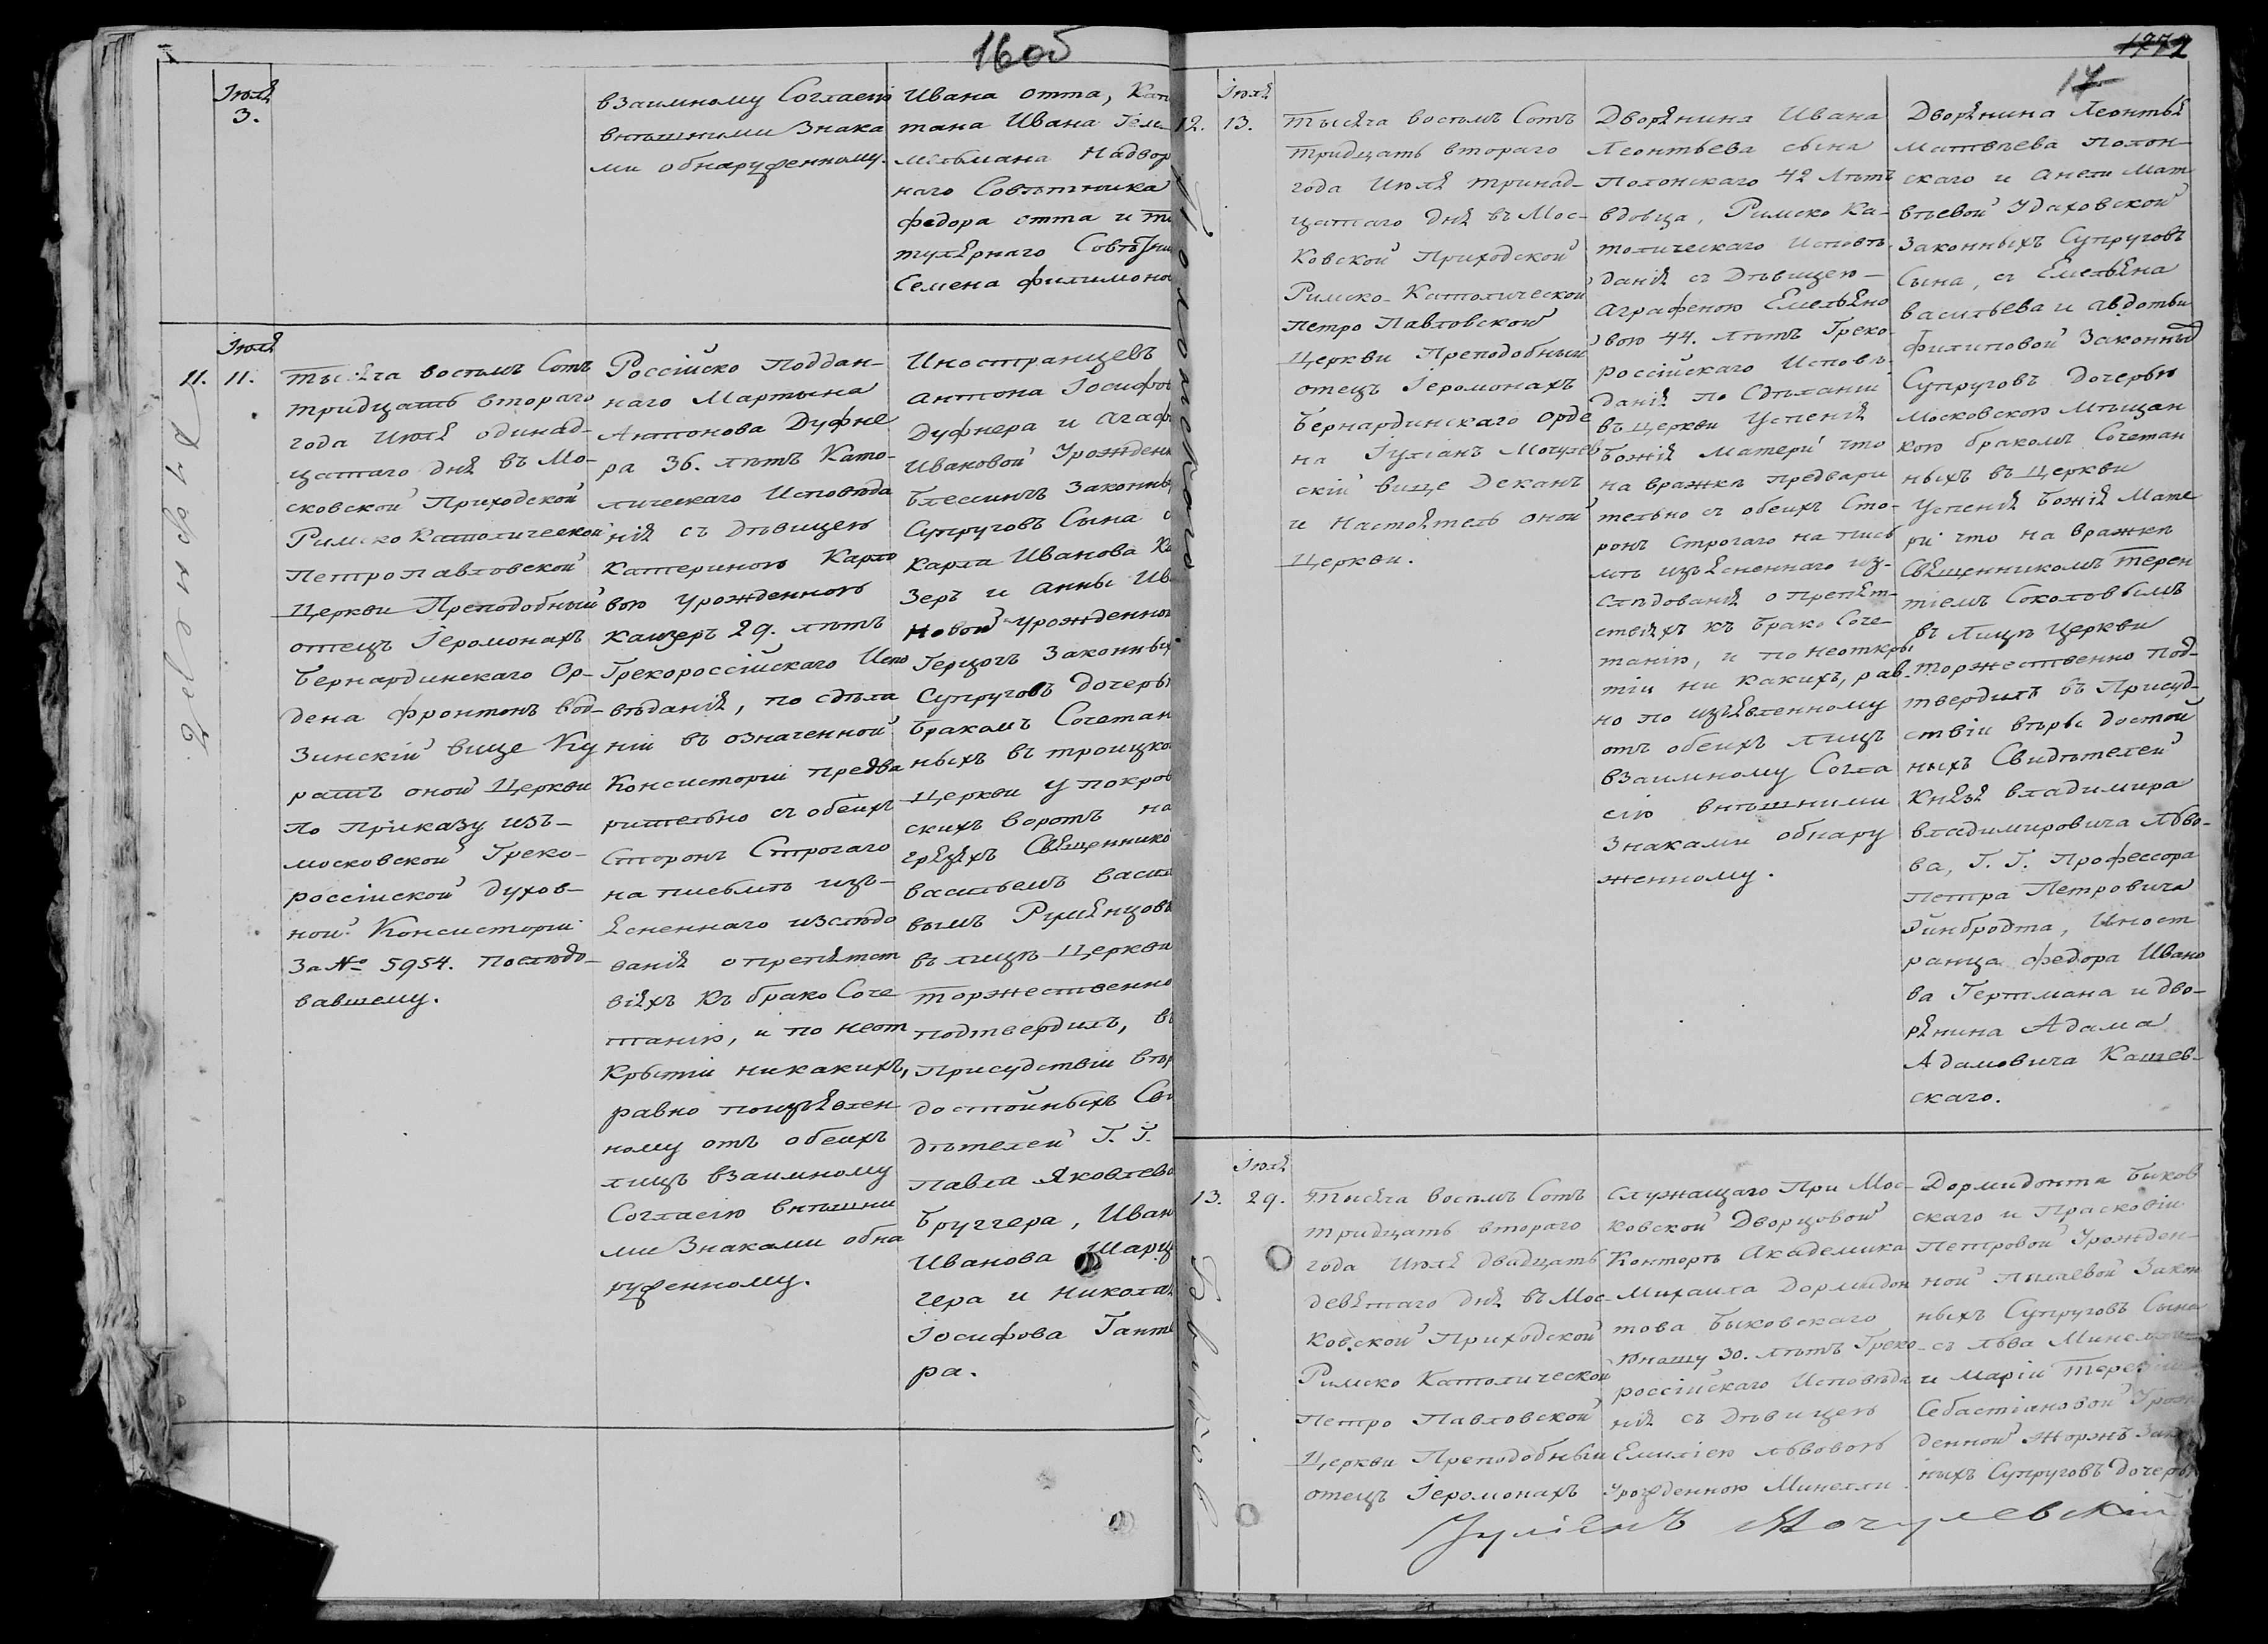 16об
Іюля
3.
взаимному Согласію
внѣшними Знака
ми обнаруженному.
Ивана Отта, Капи
тана Ивана
мельмана Надвор
наго Совѣтника
Федора Отта и ти
тулярнаго Совѣтни
Семена Филимоно
Іюля
11. 11.
Дуфнера
Тысяча восемь Сотъ
тридцать втораго
года Июля одинад-
цатаго дня въ Мо-
сковской Приходской
Римско Католической
Петропавловской
Церкви Преподобный
отецъ Іеромонахъ
Бернардинскаго Ор-
дена Фронтонъ Вод-
зинскій вице Ку
ратъ оной Церкви
По Приказу изъ-
московской Греко-
россійской Духов-
ной Консисторіи
За № 5954. Послѣдо-
вавшему.
Россійско Поддан-
наго Мартына
Антонова Дуфне
ра 36. лѣтъ Като-
лическаго Исповѣда
нія съ Дѣвицею
Катериною Карло
вою урожденною
Кайзеръ 29. лѣтъ
Грекороссійскаго Испо
вѣданія, по сдѣла
ніи въ означенной
Консисторіи предва
рительно съ обеихъ
Сторонъ Строгаго
на письмѣ изъ-
ясненнаго изслѣдо
ванія о препятст
віяхъ къ брако Соче
танію, и по неот
крытіи никакихъ,
равно поизъявлен
ному отъ обеихъ
лицъ взаимному
Согласію внѣшни
ми Знаками обна
руженному.
Иностранцевъ
Антона Іосифов
Дуфнера и Агаф
Ивановой Урожденн
Блессингъ Законны
Супруговъ Сына с
Карла Иванова Ка
Зеръ и Анны Ива
новой урожденной
Герцогъ Законных
Супруговъ дочерью
Бракомъ Сочетан
ныхъ въ троицко
Церкви у покров
скихъ воротъ на
грязяхъ Священнико
васильемъ Васил
вымъ Румянцовы
въ лицѣ Церкви
торжественно
подтвердилъ, въ
Присудствіи вѣро
достойныхъ Сви
дѣтелей Г. Г.
Павла Яковлева
Бруггера, Иван
Иванова
гера и Никола
Іосифова
ра.
1772
17
Іюля
12. 13.
Полонскаго
Тысяча восемь Сотъ
тридцать втораго
года Июля тринад-
цатаго дня въ Мос-
ковской Приходской
Римско-Католической
Петро Павловской
Церкви Преподобный
отецъ Іеромонахъ
Бернардинскаго Орде
на Іуліанъ Мочулев
скій вице Деканъ
и Настоятель оной
Церкви.
Дворянина Ивана
Леонтьева сына
Полонскаго 42 лѣтъ
вдовца, Римско Ка-
толическаго Исповѣ-
данія съ Дѣвицею-
Аграфеною Емельяно
вою 44. лѣтъ Греко-
россійскаго Исповѣ-
данія по Сдѣланіи
въ церкви Успенія
Божія Матери что
на вражкѣ предвари
тельно съ обеихъ Сто-
ронъ Строгаго на пись
мѣ изъясненнаго из-
слѣдованія о препят-
ствіяхъ къ брако Соче-
танію, и по неоткры
тіи ни какихъ, рав-
но по изъявленному
отъ обеихъ лицъ
взаимному Согла
сію внѣшними
Знаками обнару
женному.
Дворянина Леонтья
Матвѣева Полон-
скаго и Анели Мат
вѣевой Удаховской
Законныхъ Супруговъ
Сына, съ Емельяна
васильева и авдотьи
Филиповой Законныхъ
Супруговъ дочерью
Московскою Мѣщан
кою бракомъ Сочетан
ныхъ въ Церкви
Успенія Божія Мате
ри что на вражкѣ
Священникомъ терен
тіемъ Соколовымъ
въ Лицѣ Церкви
торжественно под-
твердилъ въ Присуд-
ствіи вѣро достой
ныхъ Свидѣтелей
Князя владимира
владимировича Льво-
ва, Г. Г. Профессора
Петра Петровича
Эйнбродта, Иност
ранца Федора Ивано
ва Гертмана и дво-
рянина Адама
Адамовича Кашев-
скаго.
Іюля
13. 29.
Быковск
Тысяча восемь Сотъ
тридцать втораго
года Июля двадцать
девятаго дня въ Мос-
ковской Приходской
Римско Католической
Петро Павловской
Церкви Преподобный
отецъ Іеромонахъ
Служащаго При Мос-
ковской Дворцовой
Конторѣ Академика
Михаила Дормидон
това Быковскаго
Юношу 30. лѣтъ Греко-
россійскаго Исповѣда
нія съ Дѣвицею
Емиліею Львовою
Урожденною Минелли
Дормидонта Быков
скаго и Прасковіи
Петровой Урожден-
ной Пылаевой Закон
ныхъ Супруговъ Сына
съ Льва Минелли
и Маріи Терезіи
Себастіановой Урож
денной Жоржъ Зак
ныхъ Супруговъ дочерью
Іуліянъ Мочулевскій